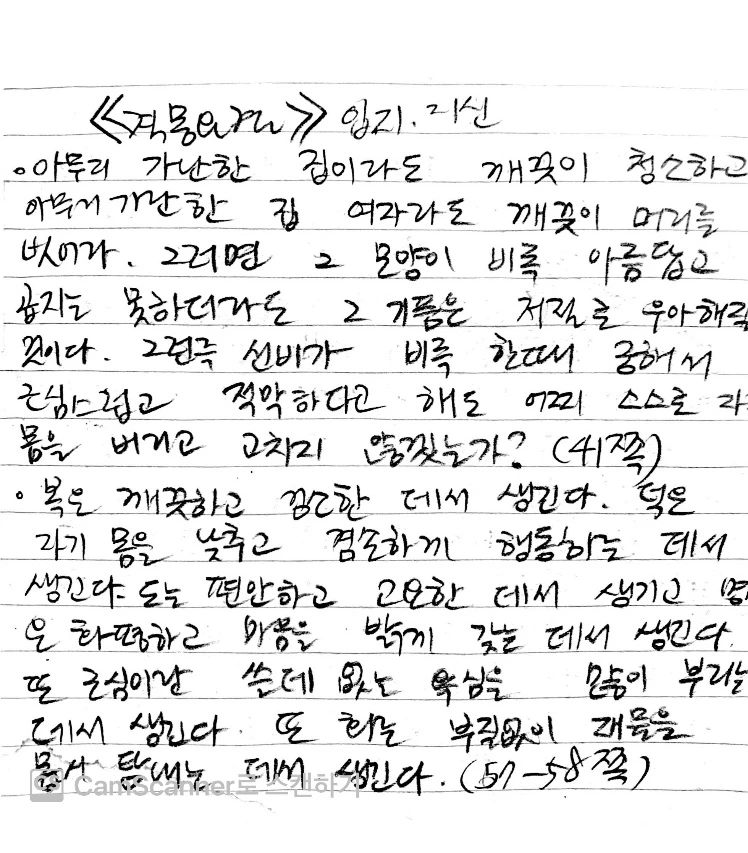 《격몽요결》 입지. 지신
• 아무리 가난한 집이라도 깨끗이 청소하고
아무리 가난한 집 여자라도 깨끗이 머리를
빗어라. 그러면 그 모양이 비록 아름답고
곱지는 못하더라도 그 기품은 저절로 우아해질
것이다. 그런즉 선비가 비록 한때 궁해서
근심스럽고 적막하다고 해도 어찌 스스로
몸을 버리고 고치지 않겠는가? (41쪽)
• 복은 깨끗하고 검소한 데서 생긴다. 덕은
자기 몸을 낮추고 겸손하게 행동하는 데서
생긴다. 도는 편안하고 고요한 데서 생기고 명
은 화평하고 마음을 밝게 갖는 데서 생긴다.
또 근심이란 쓸데 없는 욕심을 많이 부리는
데서 생긴다. 또 화는 부질없이 재물을
몹시 탐내는 데서 생긴다. (57-58쪽)
CamScanner로 스캔하기